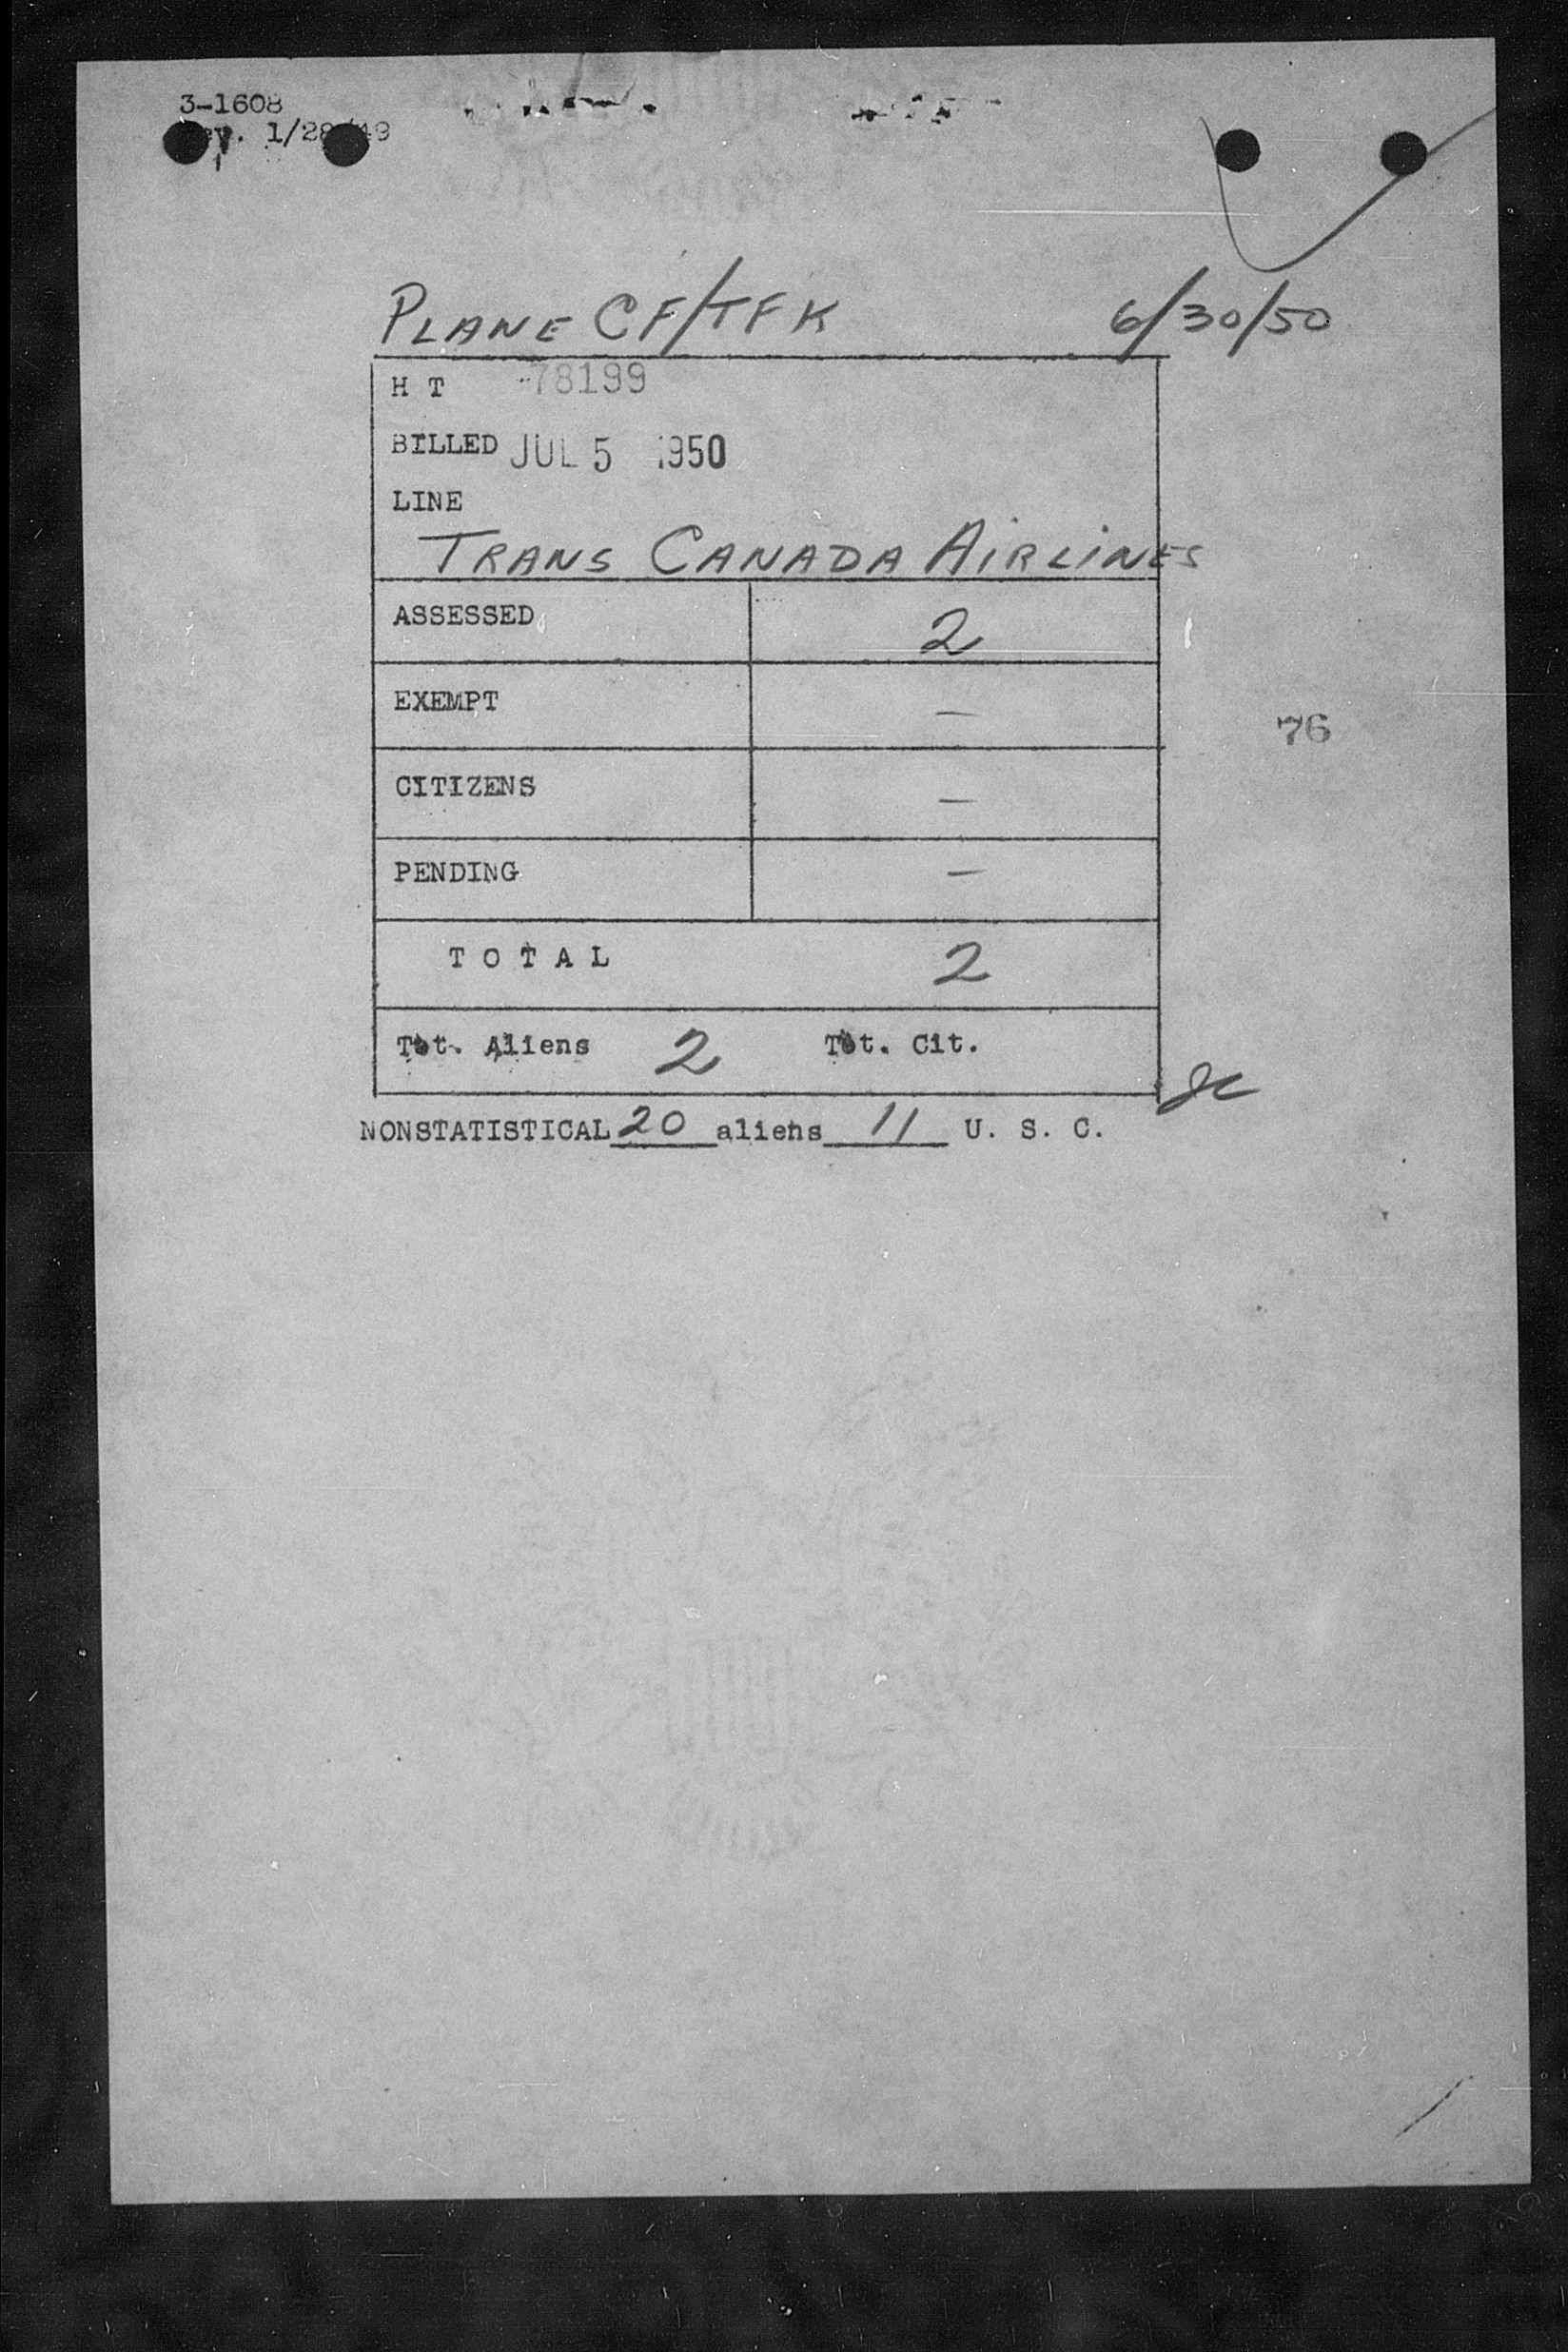 3-1608
1/28/49
PLANE CF/TFK 6/30/50
H T 78199
BILLED JUL 5 1950
LINE
TRANS CANADA AIRLINES
ASSESSED 2
EXEMPT —
76
CITIZENS —
PENDING —
T O T A L 2
Tot. Aliens 2 Tot. Cit.
NONSTATISTICAL 20 aliens 11 U. S. C.